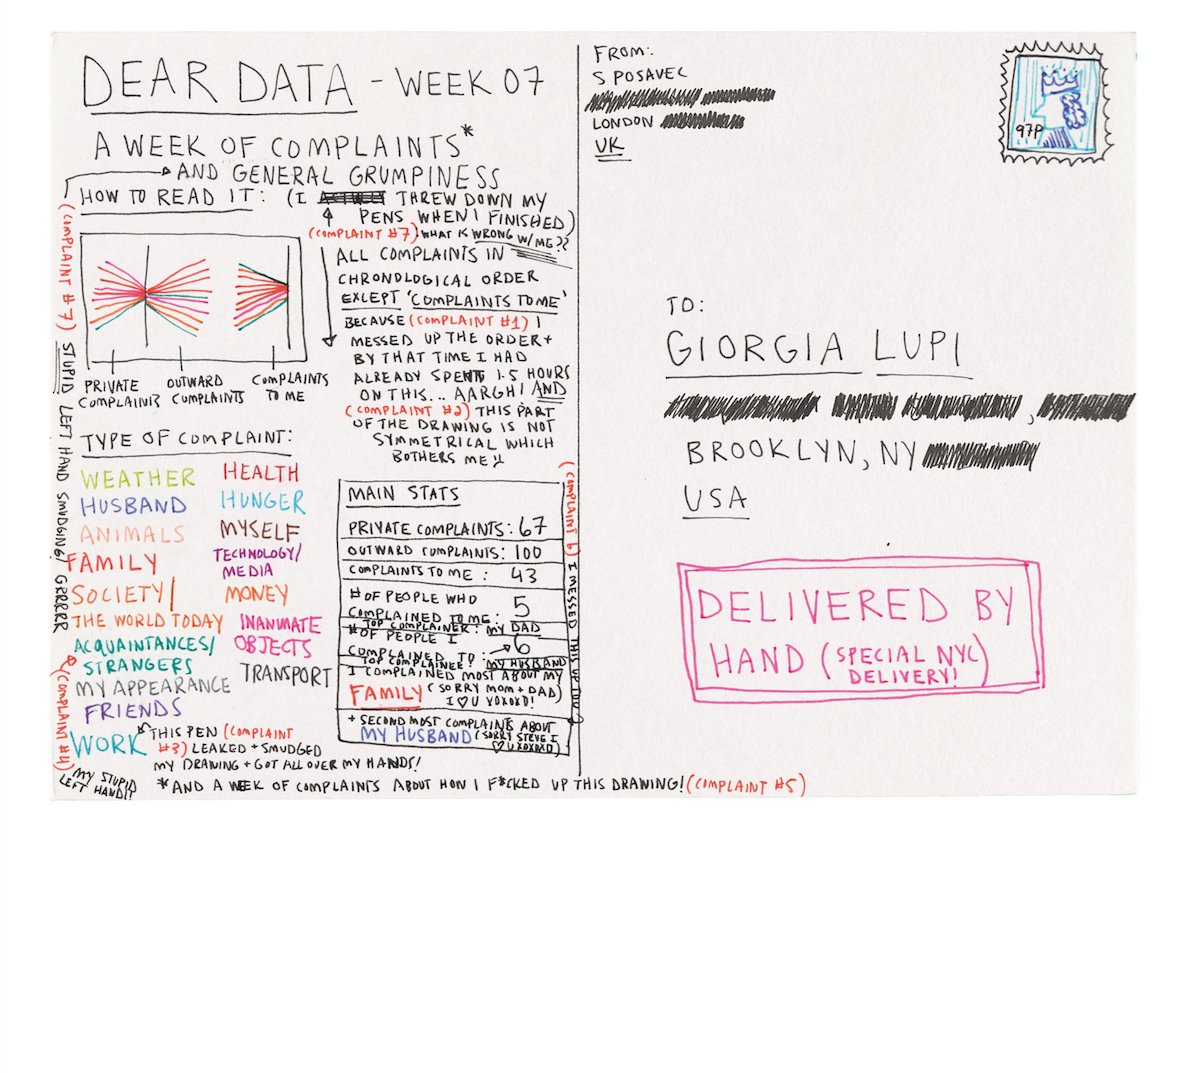 DEAR DATA - WEEK 07
A WEEK OF COMPLAINTS*
AND GENERAL GRUMPINESS
HOW TO READ IT: (I THREW DOWN MY
PENS WHEN I FINISHED)
(COMPLAINT #7) WHAT IS WRONG W/ME??
(COMPLAINT #7) STUPID LEFT HAND SMUDGING! GRRRRR
PRIVATE COMPLAINTS
OUTWARD COMPLAINTS
COMPLAINTS TO ME
ALL COMPLAINTS IN
CHRONOLOGICAL ORDER
EXCEPT 'COMPLAINTS TO ME'
BECAUSE (COMPLAINT #1) I
MESSED UP THE ORDER +
BY THAT TIME I HAD
ALREADY SPENT 1.5 HOURS
ON THIS... AARGH! AND
(COMPLAINT #2) THIS PART
OF THE DRAWING IS NOT
SYMMETRICAL WHICH
BOTHERS ME
TYPE OF COMPLAINT:
WEATHER
HUSBAND
ANIMALS
FAMILY
SOCIETY/
THE WORLD TODAY
ACQUAINTANCES/
STRANGERS
MY APPEARANCE
FRIENDS
WORK
HEALTH
HUNGER
MYSELF
TECHNOLOGY/
MEDIA
MONEY
INANIMATE
OBJECTS
TRANSPORT
THIS PEN (COMPLAINT
#3) LEAKED + SMUDGED
MY DRAWING + GOT ALL OVER MY HANDS!
(COMPLAINT #4)
MY STUPID
LEFT HAND!!
MAIN STATS
PRIVATE COMPLAINTS: 67
OUTWARD COMPLAINTS: 100
COMPLAINTS TO ME: 43
# OF PEOPLE WHO
COMPLAINED TO ME: 5
TOP COMPLAINER: MY DAD
# OF PEOPLE I
COMPLAINED TO: 6
TOP COMPLAINEE: MY HUSBAND
I COMPLAINED MOST ABOUT MY
FAMILY (SORRY MOM + DAD)
I ♡ U XOXOXO!
+ SECOND MOST COMPLAINTS ABOUT
MY HUSBAND (SORRY STEVE I
♡ U XOXOXO)
(COMPLAINT 6) I MESSED THIS UP TOO
*AND A WEEK OF COMPLAINTS ABOUT HOW I F*CKED UP THIS DRAWING! (COMPLAINT #5)
FROM:
S POSAVEC
LONDON
UK
97P
TO:
GIORGIA LUPI
BROOKLYN, NY
USA
DELIVERED BY
HAND (SPECIAL NYC
DELIVERY!)